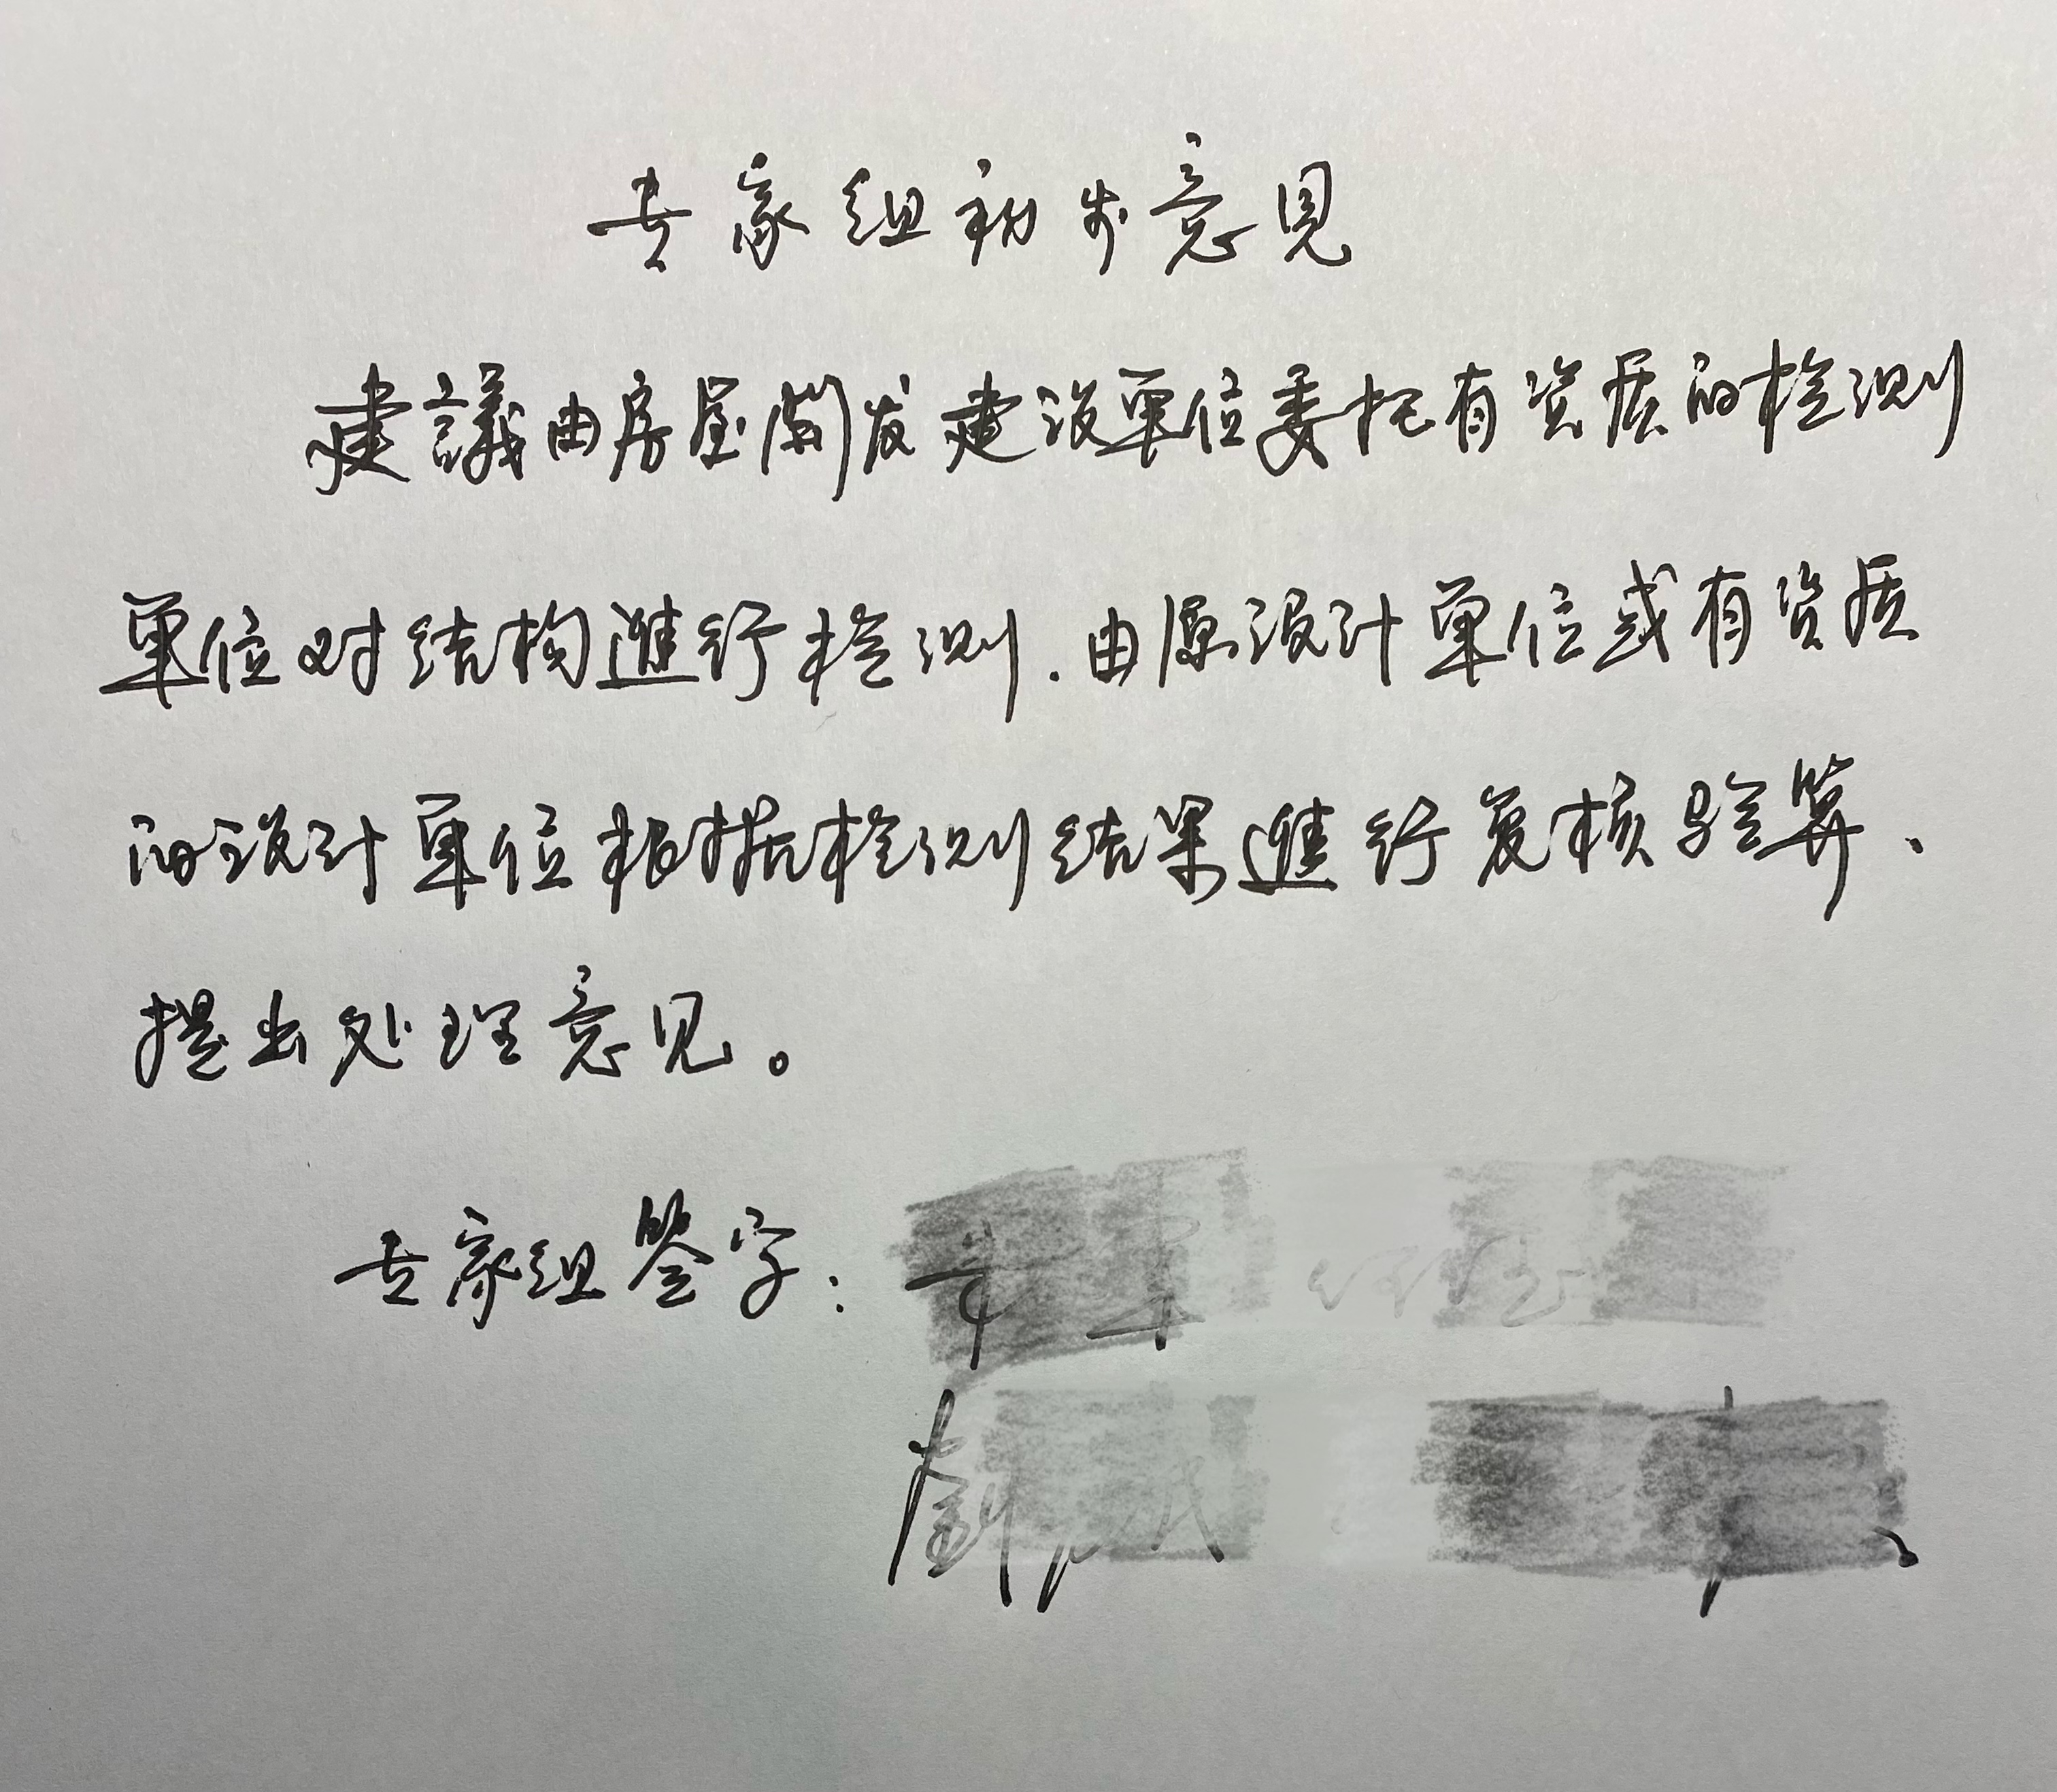 专家组初步意见
建議由房屋開发建设單位委托有资质的检测
單位对结构進行检测.由原设计單位或有资质
的设计單位根据检测结果進行复核验算、
提出处理意见。
专家组签字: